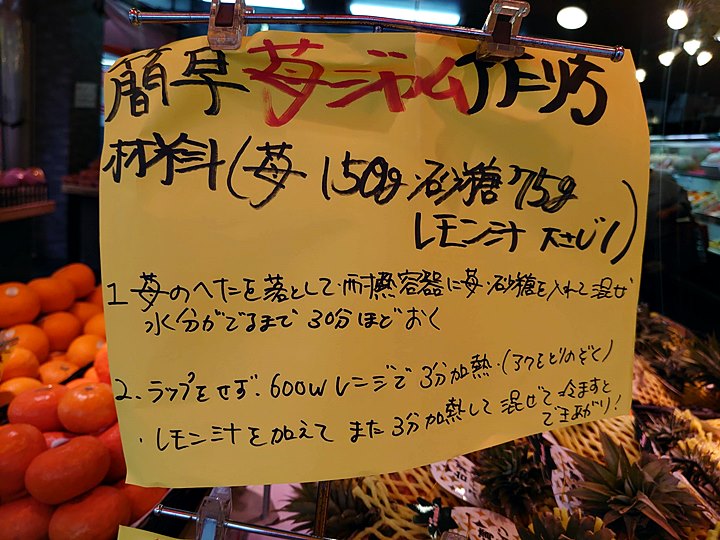 簡単 苺ジャム作り方
材料(苺 150g・砂糖75g
レモン汁 大さじ1)
1 苺のへたを落として・耐熱容器に苺・砂糖を入れて混ぜ
水分がでるまで 30分ほどおく
2. ラップをせず・600wレンジで 3分加熱・(アクをとりのぞく)
・レモン汁を加えて また3分加熱して 混ぜて冷ますと
で出来あがり!